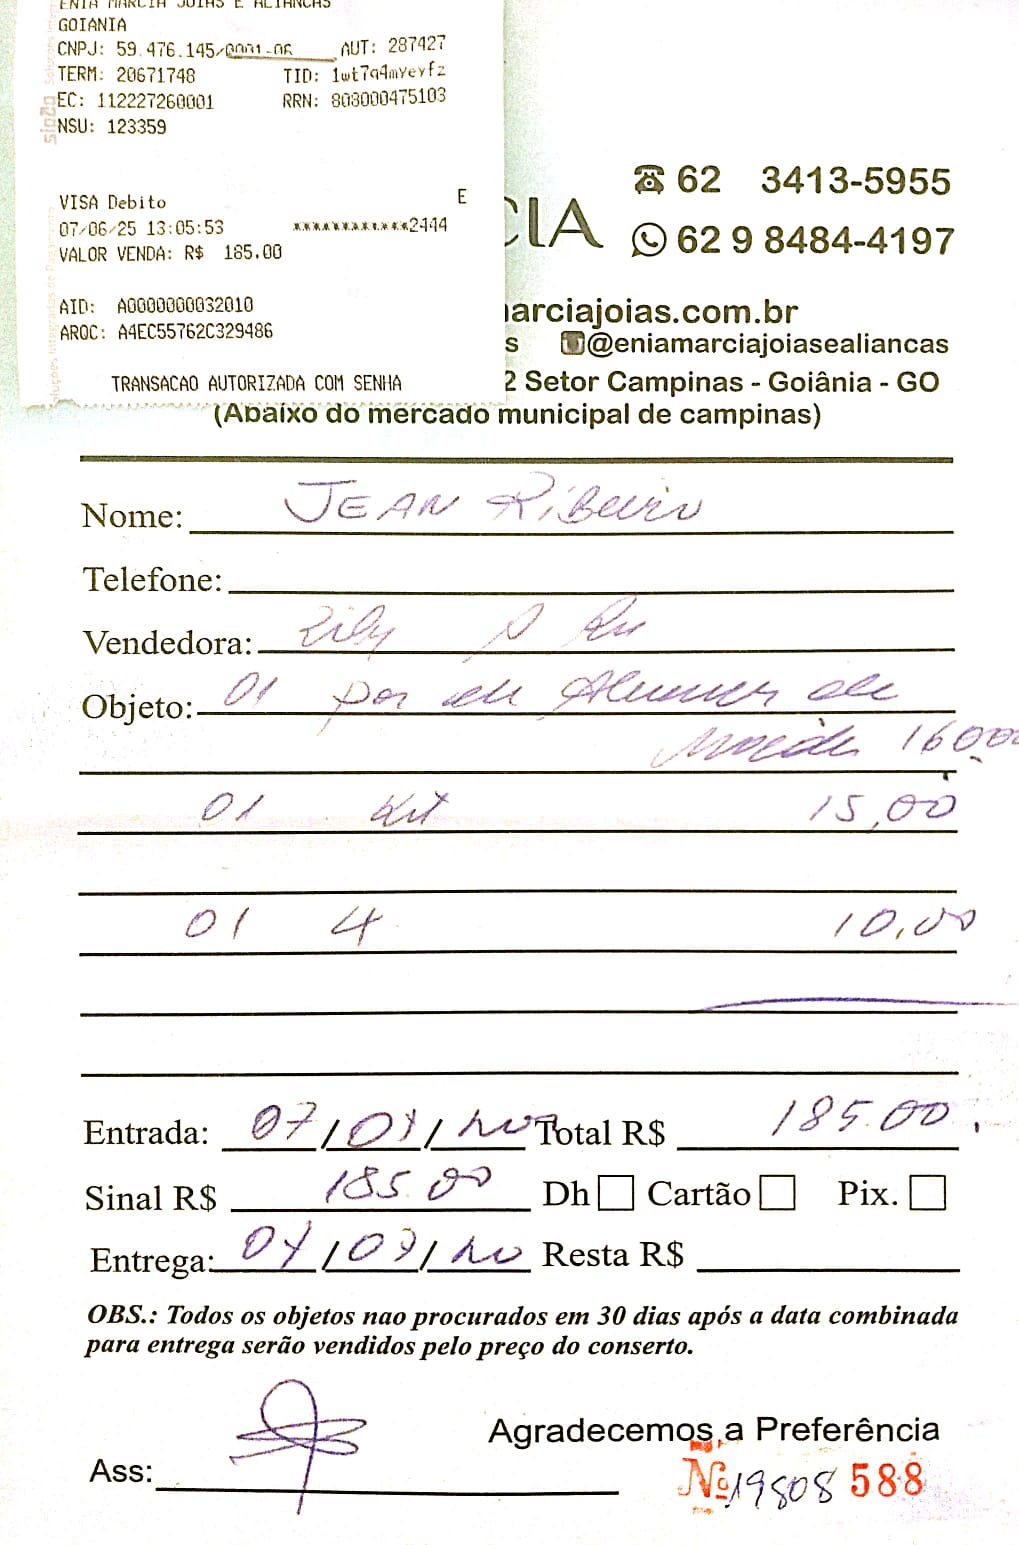 ENIA MARCIA JOIAS E ALIANCAS
GOIANIA
CNPJ: 59.476.145/0001-06 AUT: 287427
TERM: 20671748 TID: 1wt7q4mYeyfz
EC: 112227260001 RRN: 803000475103
NSU: 123359
VISA Debito E
07/06/25 13:05:53 ************2444
VALOR VENDA: R$ 185.00
AID: A0000000032010
ARQC: A4EC55762C329486
TRANSACAO AUTORIZADA COM SENHA
CIA
62 3413-5955
62 9 8484-4197
arciajoias.com.br
s @eniamarciajoiasealiancas
2 Setor Campinas - Goiânia - GO
(Abaixo do mercado municipal de campinas)
Nome: JEAN Ribeiro
Telefone:
Vendedora:
Objeto: 01 par de de
160,00
01 Kit 15,00
01 4 10,00
Entrada: 07/ Total R$ 185.00
Sinal R$ 185.00 Dh Cartão Pix.
Entrega: Resta R$
OBS.: Todos os objetos nao procurados em 30 dias após a data combinada
para entrega serão vendidos pelo preço do conserto.
Agradecemos a Preferência
Ass:
Nº 19808 588